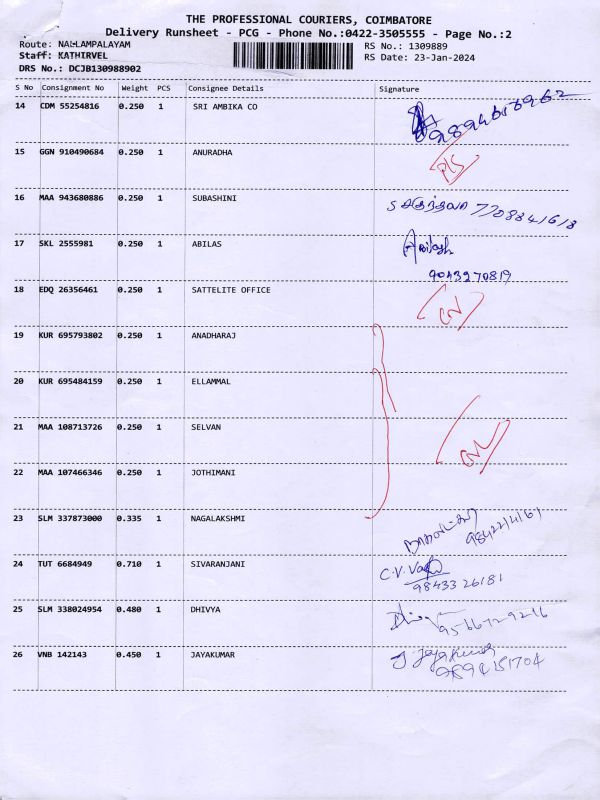 THE PROFESSIONAL COURIERS, COIMBATORE
Delivery Runsheet - PCG - Phone No.:0422-3505555 - Page No.:2
Route: NALLAMPALAYAM RS No.: 1309889
Staff: KATHIRVEL RS Date: 23-Jan-2024
DRS No.: DCJB130988902
S No Consignment No Weight PCS Consignee Details Signature
14 CDM 55254816 0.250 1 SRI AMBIKA CO
15 GGN 910490684 0.250 1 ANURADHA
16 MAA 943680886 0.250 1 SUBASHINI 7708841613
17 SKL 2555981 0.250 1 ABILAS Abilash
9043270819
18 EDQ 26356461 0.250 1 SATTELITE OFFICE
19 KUR 695793802 0.250 1 ANADHARAJ
20 KUR 695484159 0.250 1 ELLAMMAL
21 MAA 108713726 0.250 1 SELVAN
22 MAA 107466346 0.250 1 JOTHIMANI
23 SLM 337873000 0.335 1 NAGALAKSHMI
24 TUT 6684949 0.710 1 SIVARANJANI C.V.
9843326181
25 SLM 338024954 0.480 1 DHIVYA
26 VNB 142143 0.450 1 JAYAKUMAR J. Jayakumar